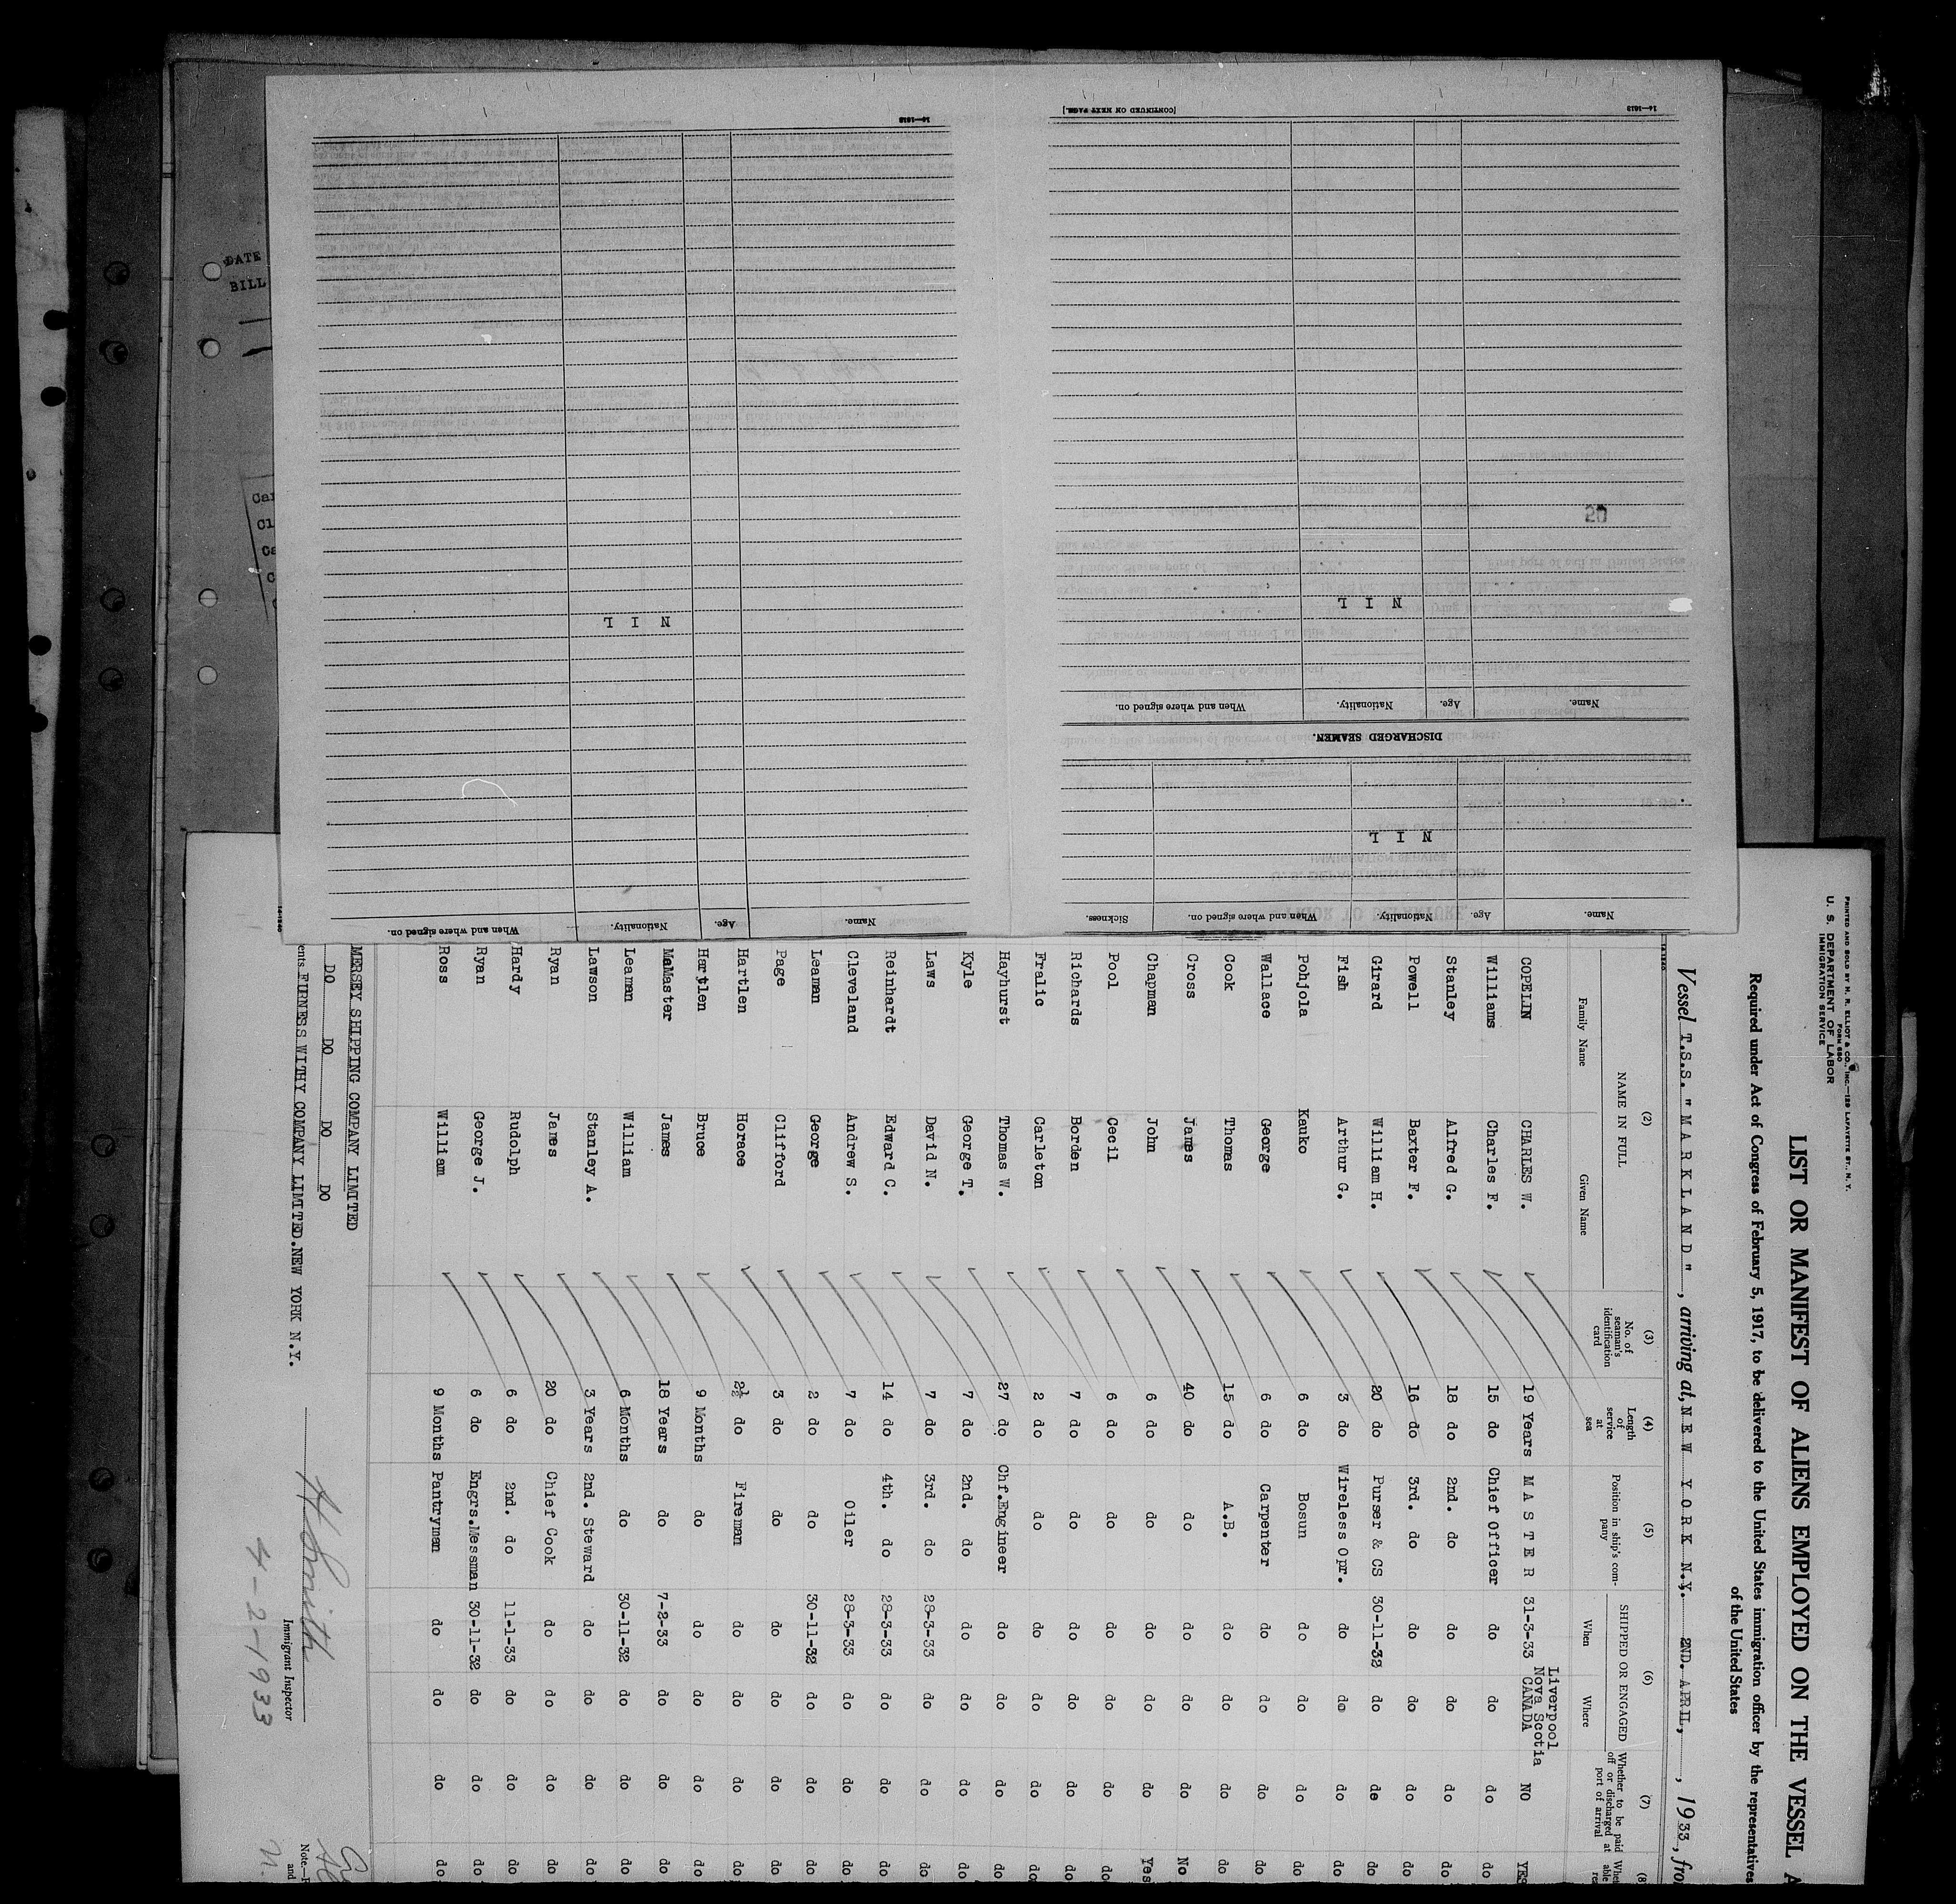 DATE
BILL
16—1613
[CONTINUED ON NEXT PAGE.]
16—1613
20
N I L
Name.
Age.
Nationality.
When and where signed on.
DISCHARGED SEAMEN.
N I L
Name.
Age.
Nationality.
When and where signed on.
Sickness.
N I L
Name.
Age.
Nationality.
When and where signed on.
PRINTED AND SOLD BY H. R. ELLIOT & CO., INC.—129 LAFAYETTE ST., N. Y.
FORM 680
U. S. DEPARTMENT OF LABOR
IMMIGRATION SERVICE
LIST OR MANIFEST OF ALIENS EMPLOYED ON THE VESSEL A
Required under Act of Congress of February 5, 1917, to be delivered to the United States immigration officer by the representatives
of the United States
Vessel T.S.S." M A R K L A N D ", arriving at, N E W Y O R K N.Y. 2ND. APRIL, 1933, fro
(2) (3) (4) (5) (6) (7) (8
NAME IN FULL
Family Name Given Name
No. of seaman's identification card
Length of service at sea
Position in ship's company
SHIPPED OR ENGAGED
When Where
Whether to be paid off or discharged at port of arrival
Liverpool
Nova Scotia
COPELIN CHARLES W. 19 Years M A S T E R 31-3-33 CANADA NO YES
Williams Charles F. 15 do Chief Officer do do do do
Stanley Alfred G. 18 do 2nd. do do do do do
Powell Baxter F. 16 do 3rd. do do do do do
Girard William H. 20 do Purser & CS 30-11-32 do do do
Fish Arthur G. 3 do Wireless Opr. do do do do
Pohjola Kauko 6 do Bosun do do do do
Wallace George 6 do Carpenter do do do do
Cook Thomas 15 do A.B. do do do do
Cross James 40 do do do do do No
Chapman John 6 do do do do do Yes
Pool Cecil 6 do do do do do do
Richards Borden 7 do do do do do do
Fralic Carleton 2 do do do do do do
Hayhurst Thomas W. 27 do Chf.Engineer do do do do
Kyle George T. 7 do 2nd. do do do do do
Laws David N. 7 do 3rd. do 28-3-33 do do do
Reinhardt Edward C. 14 do 4th. do 28-3-33 do do do
Cleveland Andrew S. 7 do Oiler 28-3-33 do do do
Leaman George 2 do do 30-11-32 do do do
Page Clifford 3 do do do do do do
Hartlen Horace 2½ do Fireman do do do do
Hartlen Bruce 9 Months do do do do do
MaMaster James 18 Years do 7-2-33 do do do
Leaman William 6 Months do 30-11-32 do do do
Lawson Stanley A. 3 Years 2nd. Steward do do do do
Ryan James 20 do Chief Cook do do do do
Hardy Rudolph 6 do 2nd. do 11-1-33 do do do
Ryan George J. 6 do Engrs.Messman 30-11-32 do do do
Ross William 9 Months Pantryman do do do do
MERSEY SHIPPING COMPANY LIMITED
DO DO DO DO
ents FURNESS WITHY COMPANY LIMITED.NEW YORK N.Y.
H Smith
Immigrant Inspector
4-2-1933